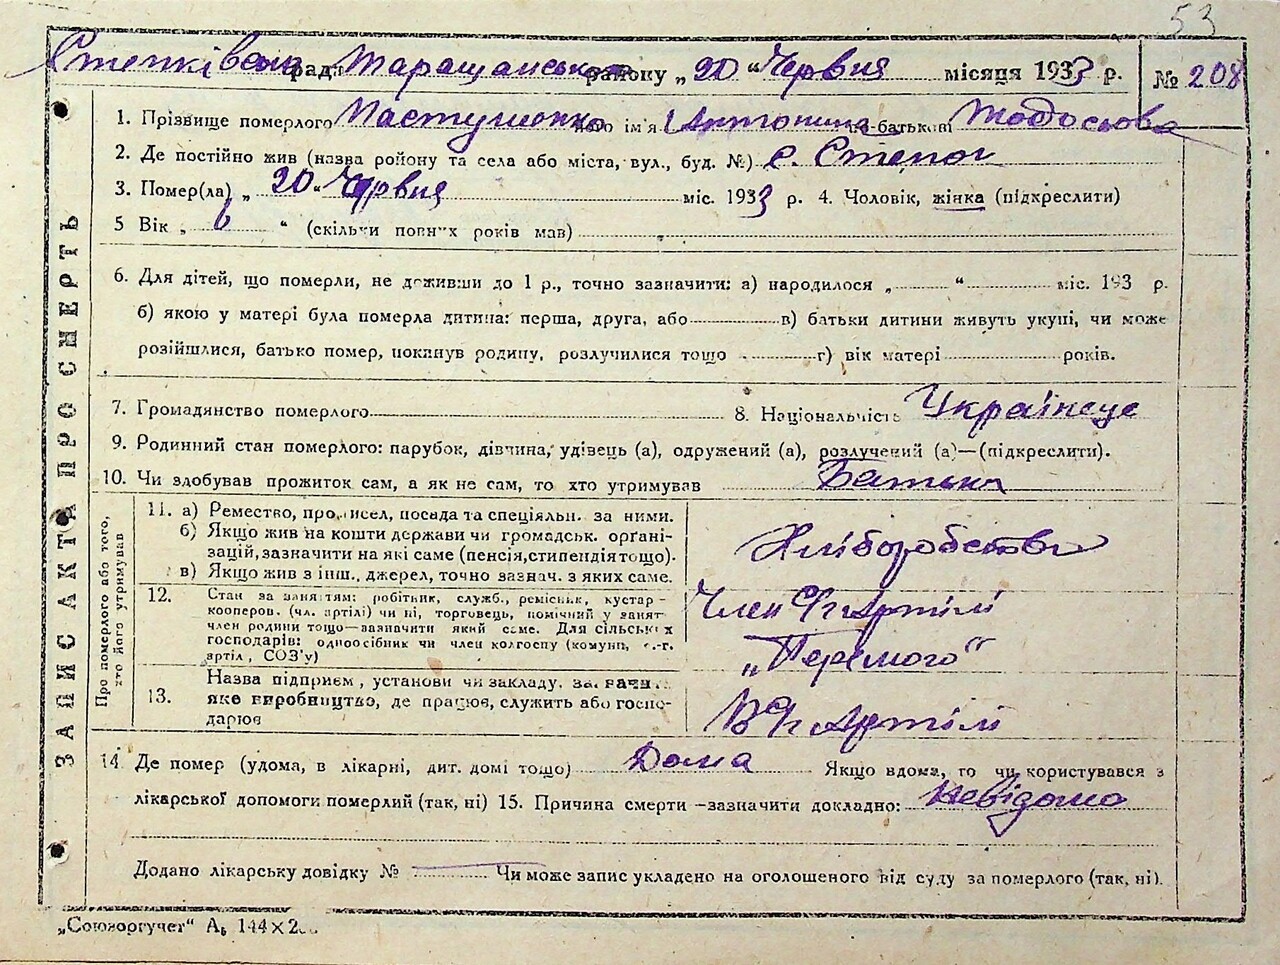 53
Степківська рада Таращанського району „20" Червня місяця 1933 р. № 208
ЗАПИС АКТА ПРО СМЕРТЬ
1. Прізвище померлого Пастушенко його ім'я Антонина по-батькові Тодосьова
2. Де постійно жив (назва ройону та села або міста, вул., буд. №) с. Степок
3. Помер(ла) „ 20 " Червня міс. 1933 р. 4. Чоловік, жінка (підкреслити)
5 Вік „ 6 " (скільки повних років мав)
6. Для дітей, що померли, не доживши до 1 р., точно зазначити: а) народилося „ " міс. 193 р.
б) якою у матері була померла дитина: перша, друга, або в) батьки дитини живуть укупі, чи може
розійшлися, батько помер, покинув родину, розлучилися тощо г) вік матері років.
7. Громадянство померлого 8. Національність Українець
9. Родинний стан померлого: парубок, дівчина, удівець (а), одружений (а), розлучений (а)—(підкреслити).
10. Чи здобував прожиток сам, а як не сам, то хто утримував Батько
Про померлого або того,
хто його утримував
11. а) Ремество, промисел, посада та спеціяльн. за ними.
б) Якщо жив на кошти держави чи громадськ. органі-
зацій, зазначити на які саме (пенсія, стипендія тощо).
в) Якщо жив з інш., джерел, точно зазнач. з яких саме.
Хліборобство
12. Стан за заняттям: робітник, служб., ремісник, кустар-
кооперов. (чл. артілі) чи ні, торговець, помічний у занят.
член родини тощо—зазначити який саме. Для сільських
господарів: одноосібник чи член колгоспу (комуни, с.-г.
артіл, СОЗ'у)
Член с/г Артілі
„Перемого"
13. Назва підприєм, установи чи закладу, зазначит.
яке виробництво, де працює, служить або госпо-
дарює
В с/г Артілі
14. Де помер (удома, в лікарні, дит. домі тощо) Дома Якщо вдома, то чи користувався з
лікарської допомоги померлий (так, ні) 15. Причина смерти—зазначити докладно: Невідомо
Додано лікарську довідку № Чи може запис укладено на оголошеного від суду за померлого (так, ні).
„Союзоргучет" А₅ 144×2